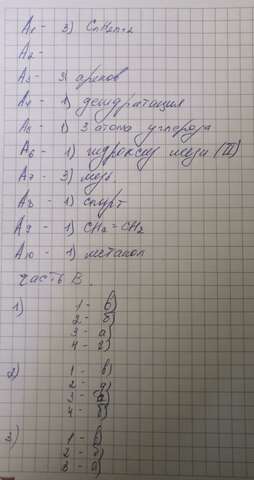 А1 - 3) CnH2n+2
А2 -
А3 - 3) аренов
А4 - 1) дегидратация
А5 - 1) 3 атома углерода
А6 - 1) гидроксид меди (II)
А7 - 3) медь
А8 - 1) спирт
А9 - 1) CH2=CH2
А10 - 1) метанол
Часть В.
1) 1 - б)
2 - б)
3 - а)
4 - г)
2) 1 - в)
2 - д)
3 - а)
4 - б)
3) 1 -
2 -
3 -